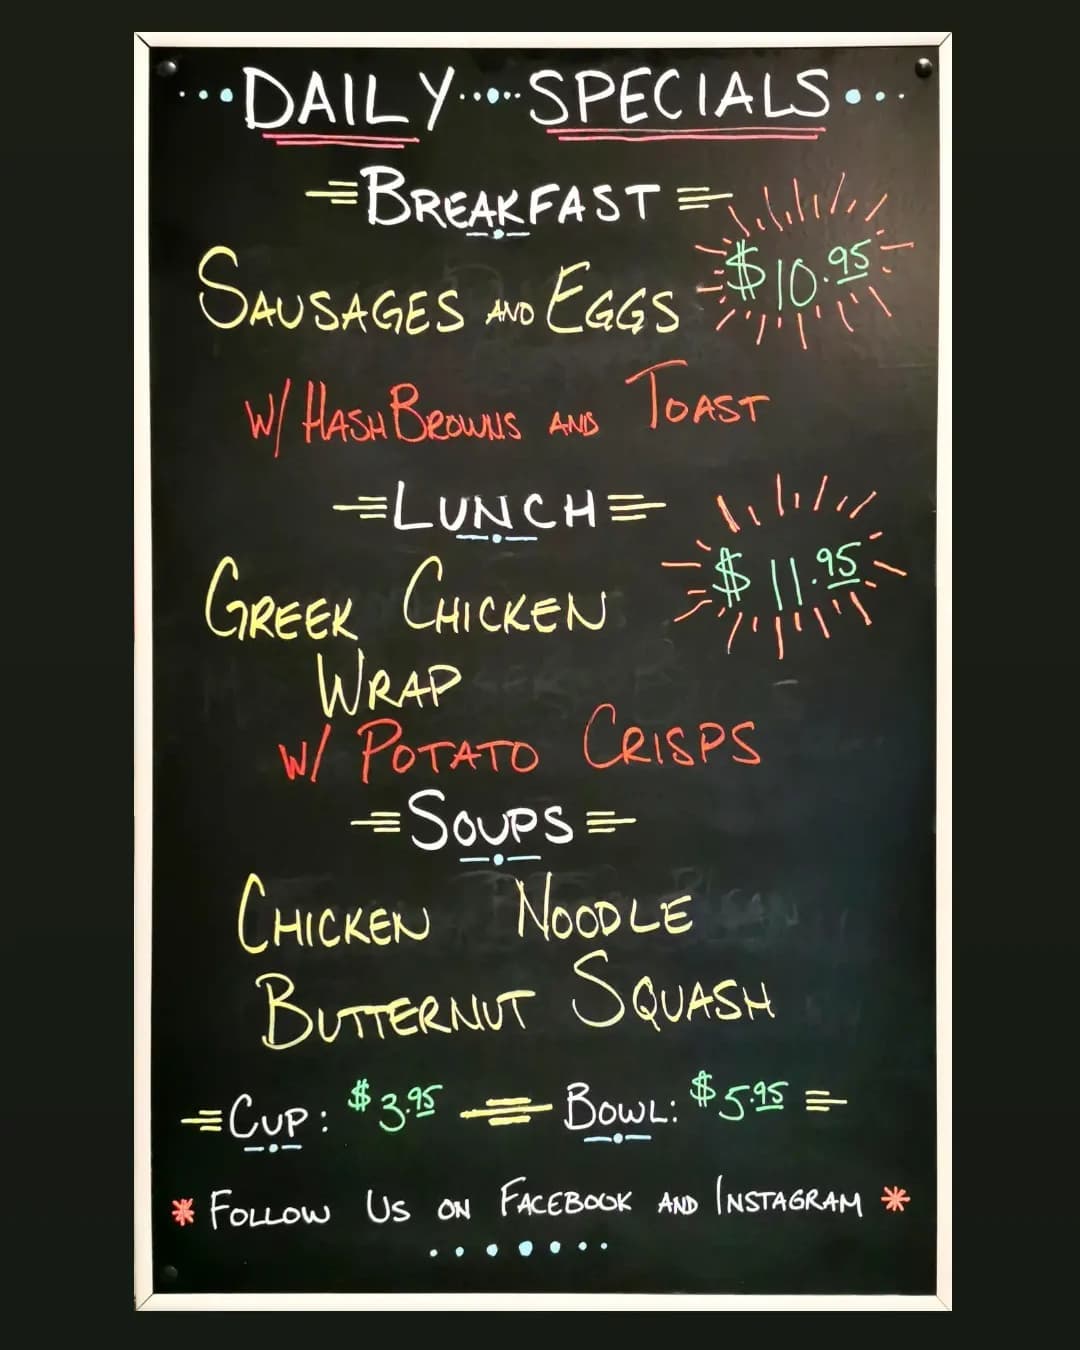 DAILY SPECIALS
BREAKFAST
SAUSAGES AND EGGS $10.95
W/ HASHBROWNS AND TOAST
LUNCH
GREEK CHICKEN $11.95
WRAP
W/ POTATO CRISPS
SOUPS
CHICKEN NOODLE
BUTTERNUT SQUASH
CUP: $3.95 BOWL: $5.95
* FOLLOW US ON FACEBOOK AND INSTAGRAM *